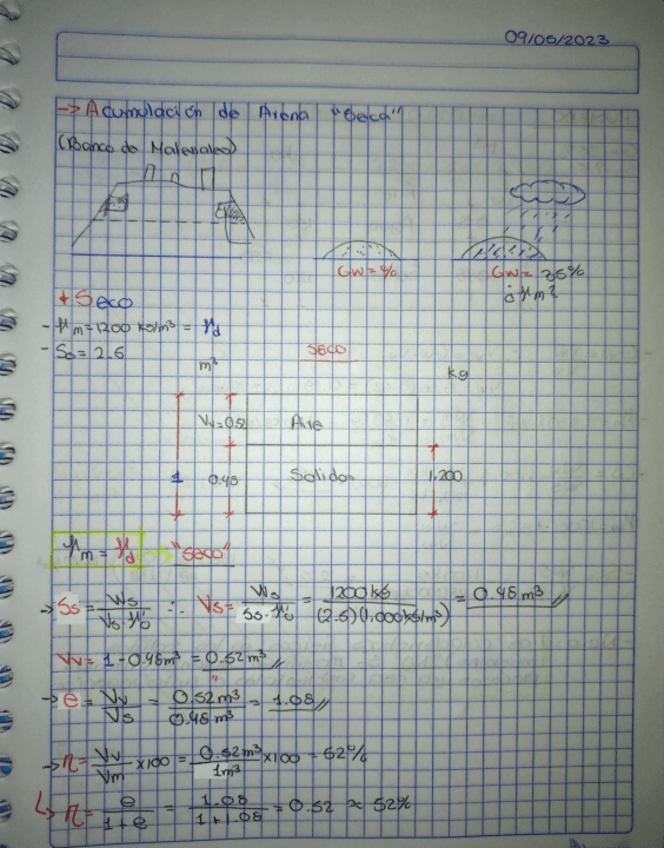 09/05/2023
→ Acumulación de Arena "Seca"
(Banco de Materiales)
Gw = %
Gw = 35%
¿γm?
+ Seco
- γm = 1200 kg/m³ = γd
- Ss = 2.5
SECO
m³
kg
Vv = 0.52
Aire
1
0.48
Solidos
1,200
γm = γd → "SECO"
→ Ss = Ws / Vs · γo ∴ Vs = Ws / Ss · γo = 1200 kg / (2.5)(1,000 kg/m³) = 0.48 m³ //
Vv = 1 - 0.48 m³ = 0.52 m³ //
→ e = Vv / Vs = 0.52 m³ / 0.48 m³ = 1.08 //
→ n = Vv / Vm × 100 = 0.52 m³ / 1 m³ × 100 = 52%
↳ n = e / 1 + e = 1.08 / 1 + 1.08 = 0.52 ≈ 52%